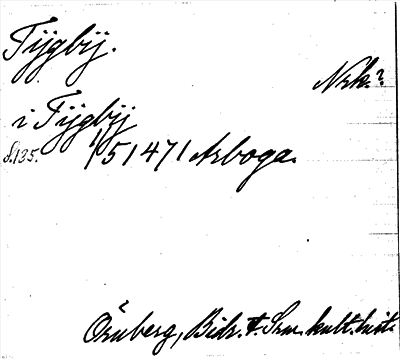 Tijgbij.
Nrk.?
i Tijgbij
S.135. 1/5 1471 Arboga.
Örnberg, Bidr. t. Sv. kult. hist.